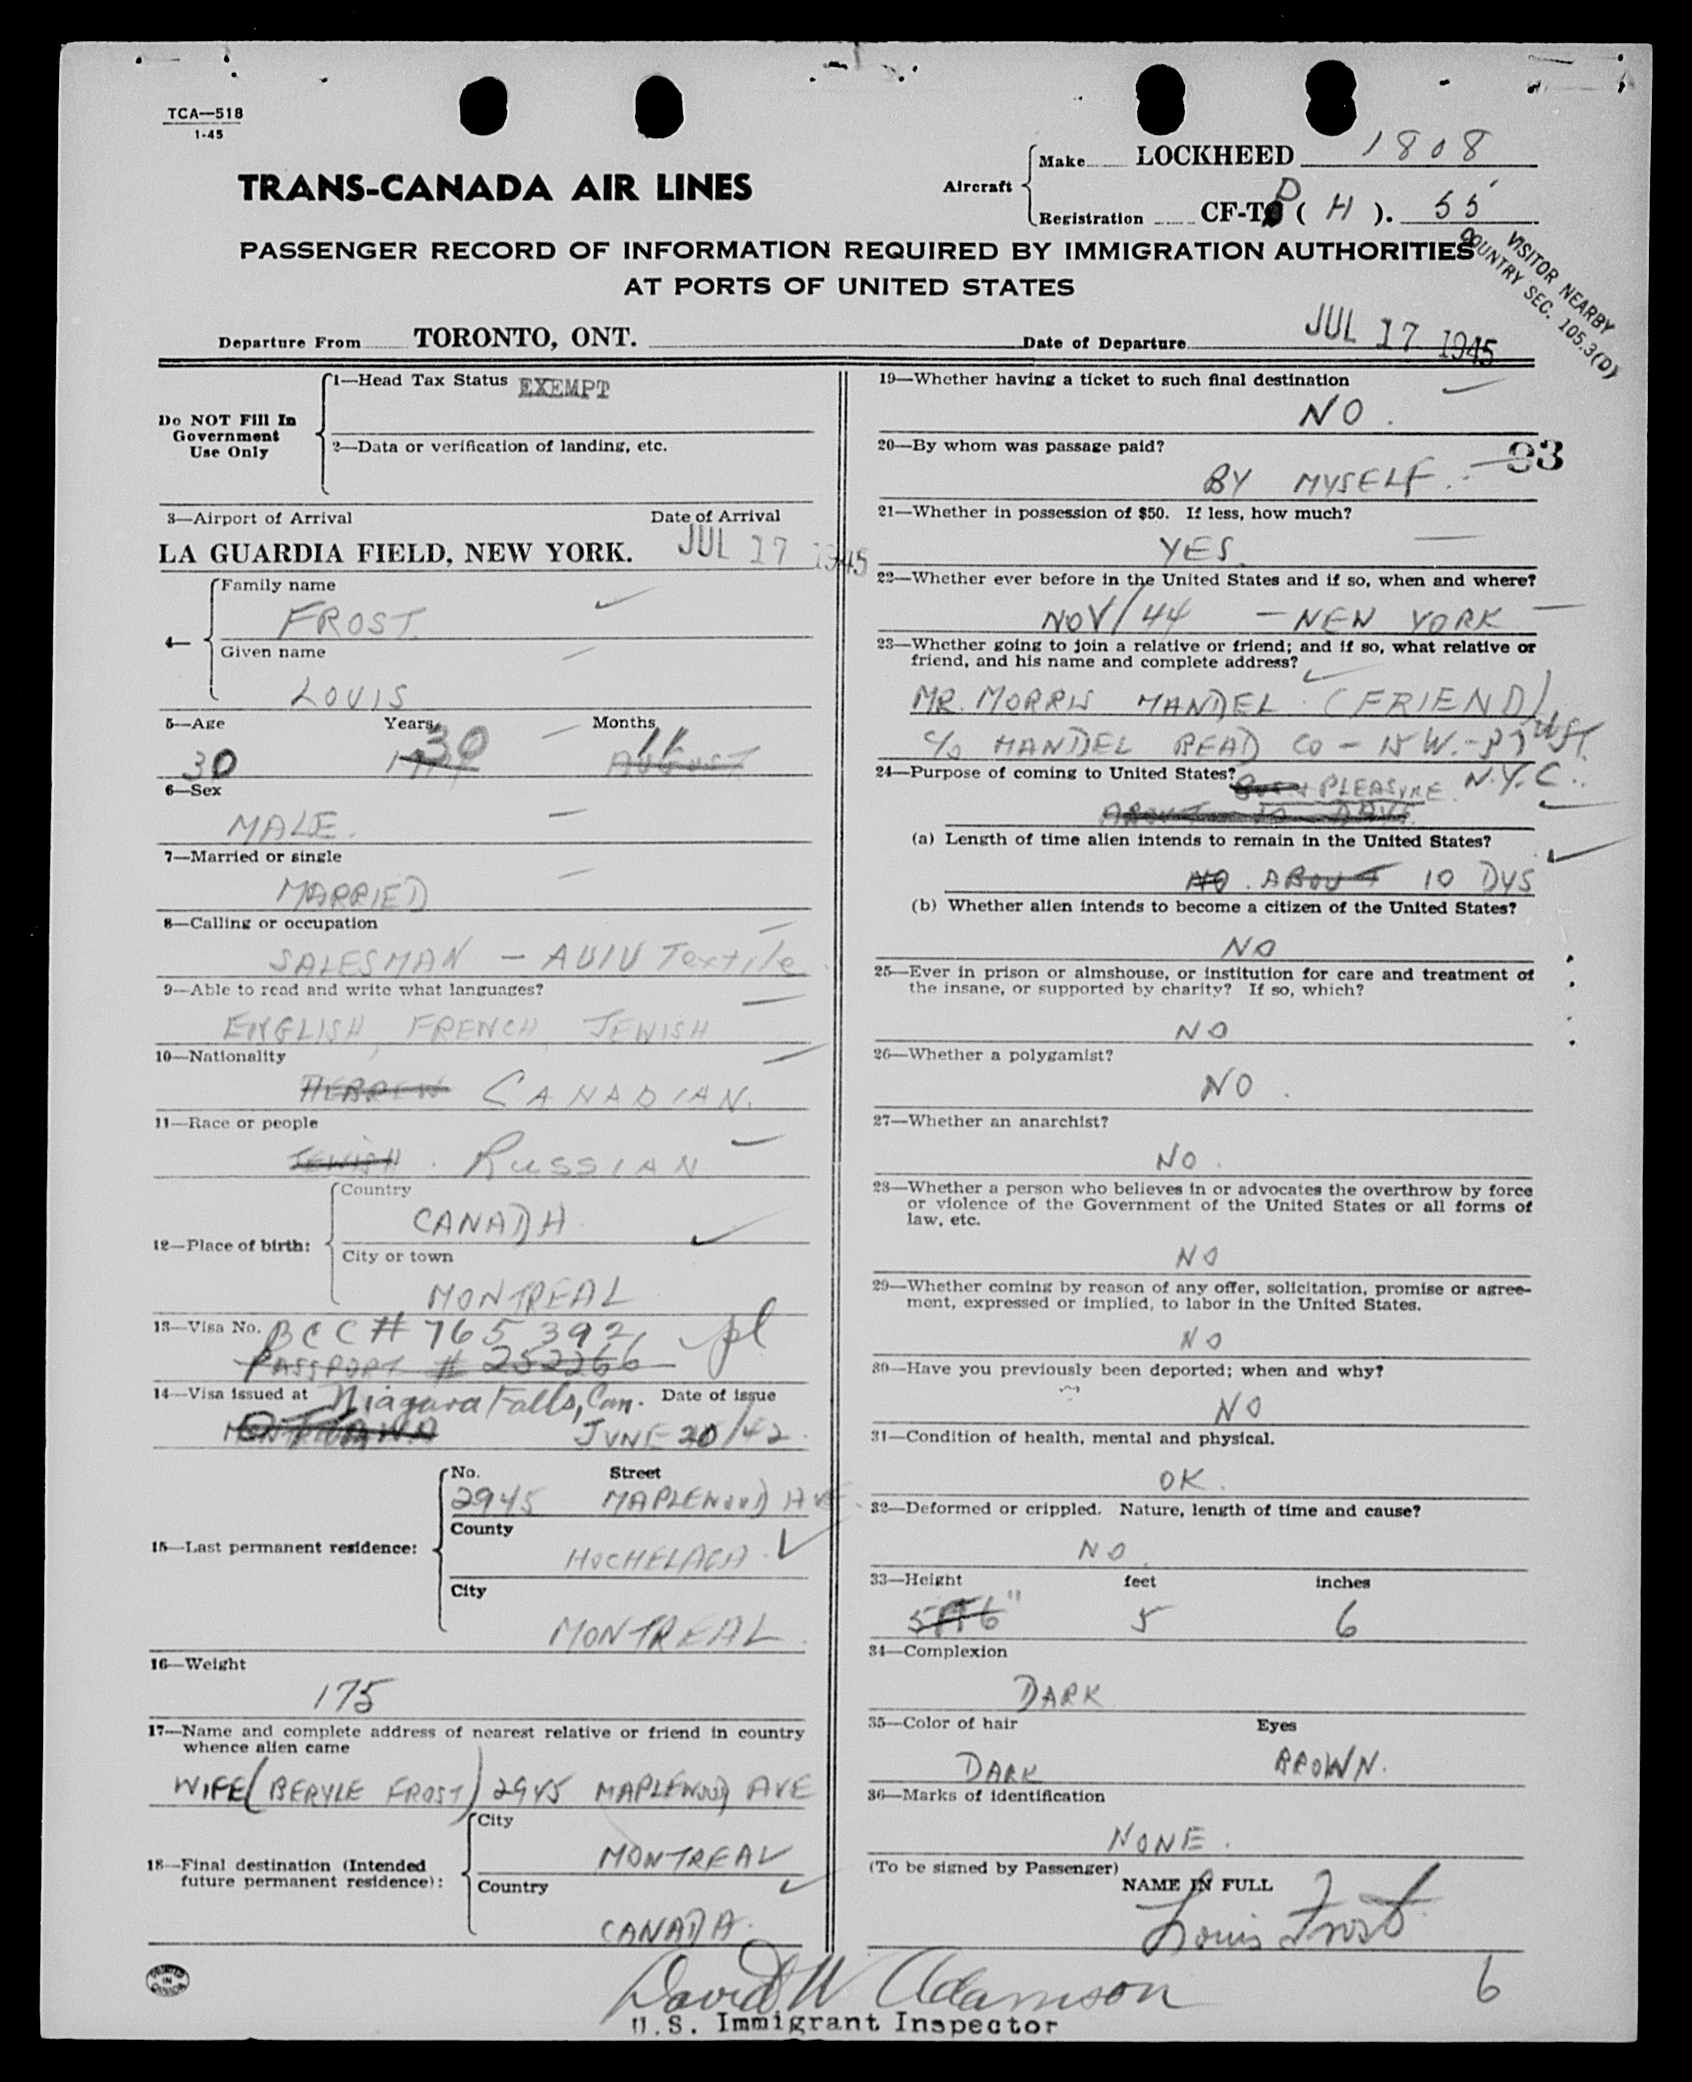 TCA—518
1-45
TRANS-CANADA AIR LINES
Aircraft
Make LOCKHEED 1808
Registration CF-T ( H ). 55
PASSENGER RECORD OF INFORMATION REQUIRED BY IMMIGRATION AUTHORITIES
AT PORTS OF UNITED STATES
VISITOR NEARBY
COUNTRY SEC. 105.3(D)
Departure From TORONTO, ONT. Date of Departure JUL 17 1945
Do NOT Fill In
Government
Use Only
1—Head Tax Status EXEMPT
2—Data or verification of landing, etc.
3—Airport of Arrival Date of Arrival
LA GUARDIA FIELD, NEW YORK. JUL 17 1945
4—
Family name
FROST
Given name
LOUIS
5—Age Years Months
30 30 11
AUGUST
6—Sex
MALE.
7—Married or single
MARRIED
8—Calling or occupation
SALESMAN – AVIV Textile
9—Able to read and write what languages?
ENGLISH, FRENCH JEWISH
10—Nationality
HEBREW CANADIAN.
11—Race or people
JEWISH . RUSSIAN
12—Place of birth:
Country
CANADA
City or town
MONTREAL
13—Visa No. BCC # 765392
PASSPORT # 252266
14—Visa issued at Niagara Falls, Can. Date of issue
JUNE 20/42
15—Last permanent residence:
No. Street
2945 MAPLEWOOD AVE.
County
HOCHELAGA
City
MONTREAL
16—Weight
175
17—Name and complete address of nearest relative or friend in country
whence alien came
WIFE (BERYLE FROST) 2945 MAPLEWOOD AVE
18—Final destination (Intended
future permanent residence):
City
MONTREAL
Country
CANADA.
PRINTED IN CANADA
19—Whether having a ticket to such final destination
NO.
20—By whom was passage paid?
93
BY MYSELF.
21—Whether in possession of $50. If less, how much?
YES.
22—Whether ever before in the United States and if so, when and where?
NOV/44 – NEW YORK
23—Whether going to join a relative or friend; and if so, what relative or
friend, and his name and complete address?
MR. MORRIS MANDEL (FRIEND)
c/o MANDEL READ CO – 15 W. – 37
N.Y.C.
24—Purpose of coming to United States?
PLEASURE
ABOUT 10 DAYS.
(a) Length of time alien intends to remain in the United States?
NO. ABOUT 10 DYS
(b) Whether alien intends to become a citizen of the United States?
NO
25—Ever in prison or almshouse, or institution for care and treatment of
the insane, or supported by charity? If so, which?
NO
26—Whether a polygamist?
NO.
27—Whether an anarchist?
NO.
28—Whether a person who believes in or advocates the overthrow by force
or violence of the Government of the United States or all forms of
law, etc.
NO
29—Whether coming by reason of any offer, solicitation, promise or agree-
ment, expressed or implied, to labor in the United States.
NO
30—Have you previously been deported; when and why?
NO
31—Condition of health, mental and physical.
OK.
32—Deformed or crippled. Nature, length of time and cause?
NO.
33—Height feet inches
5 FT 6" 5 6
34—Complexion
DARK
35—Color of hair Eyes
DARK BROWN.
36—Marks of identification
NONE.
(To be signed by Passenger)
NAME IN FULL
Louis Frost
David W Adamson
U.S. Immigrant Inspector
6